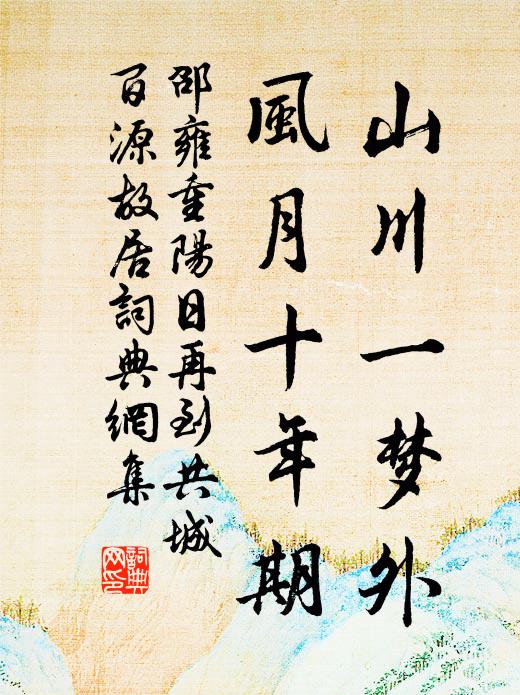 山川一梦外
風月十年期
邵雍重陽日再到共城
百源故居詞典網集
詞典网印